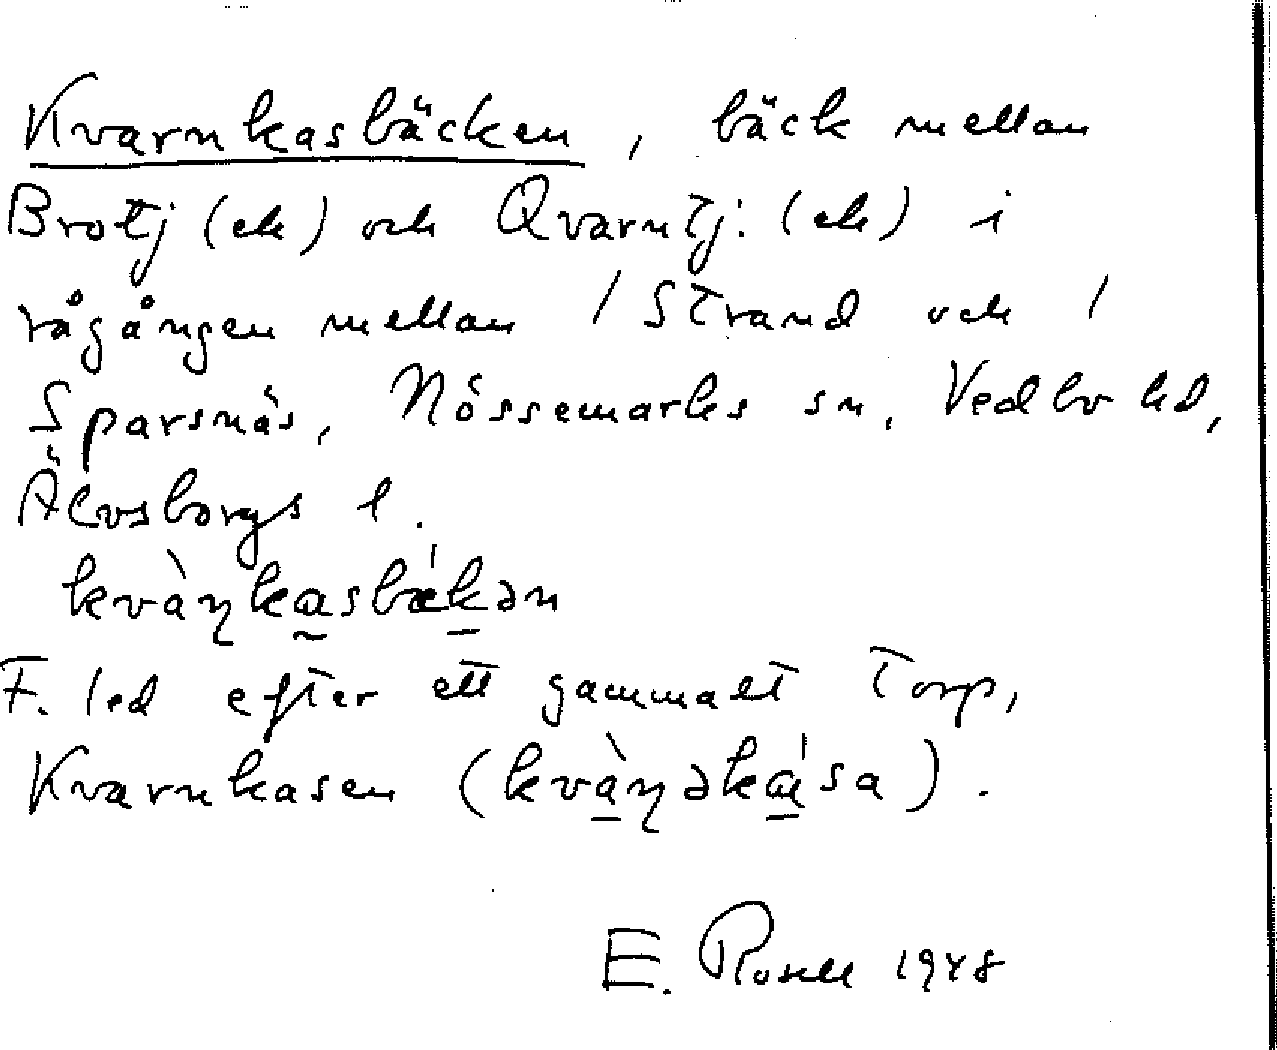 Kvarnkasbäcken, bäck mellan
Brotj (ek) och Qvarntj: (ek) i
rågången mellan / Strand och /
Sparsnäs, Nössemarks sn, Vedbo hd,
Älvsborgs l.
kvàɳka̰sbǽk̲ən
F. led efter ett gammalt torp,
Kvarnkasen (kvà̲ɳəkɑ̲́sa).
E. Rosell 1948